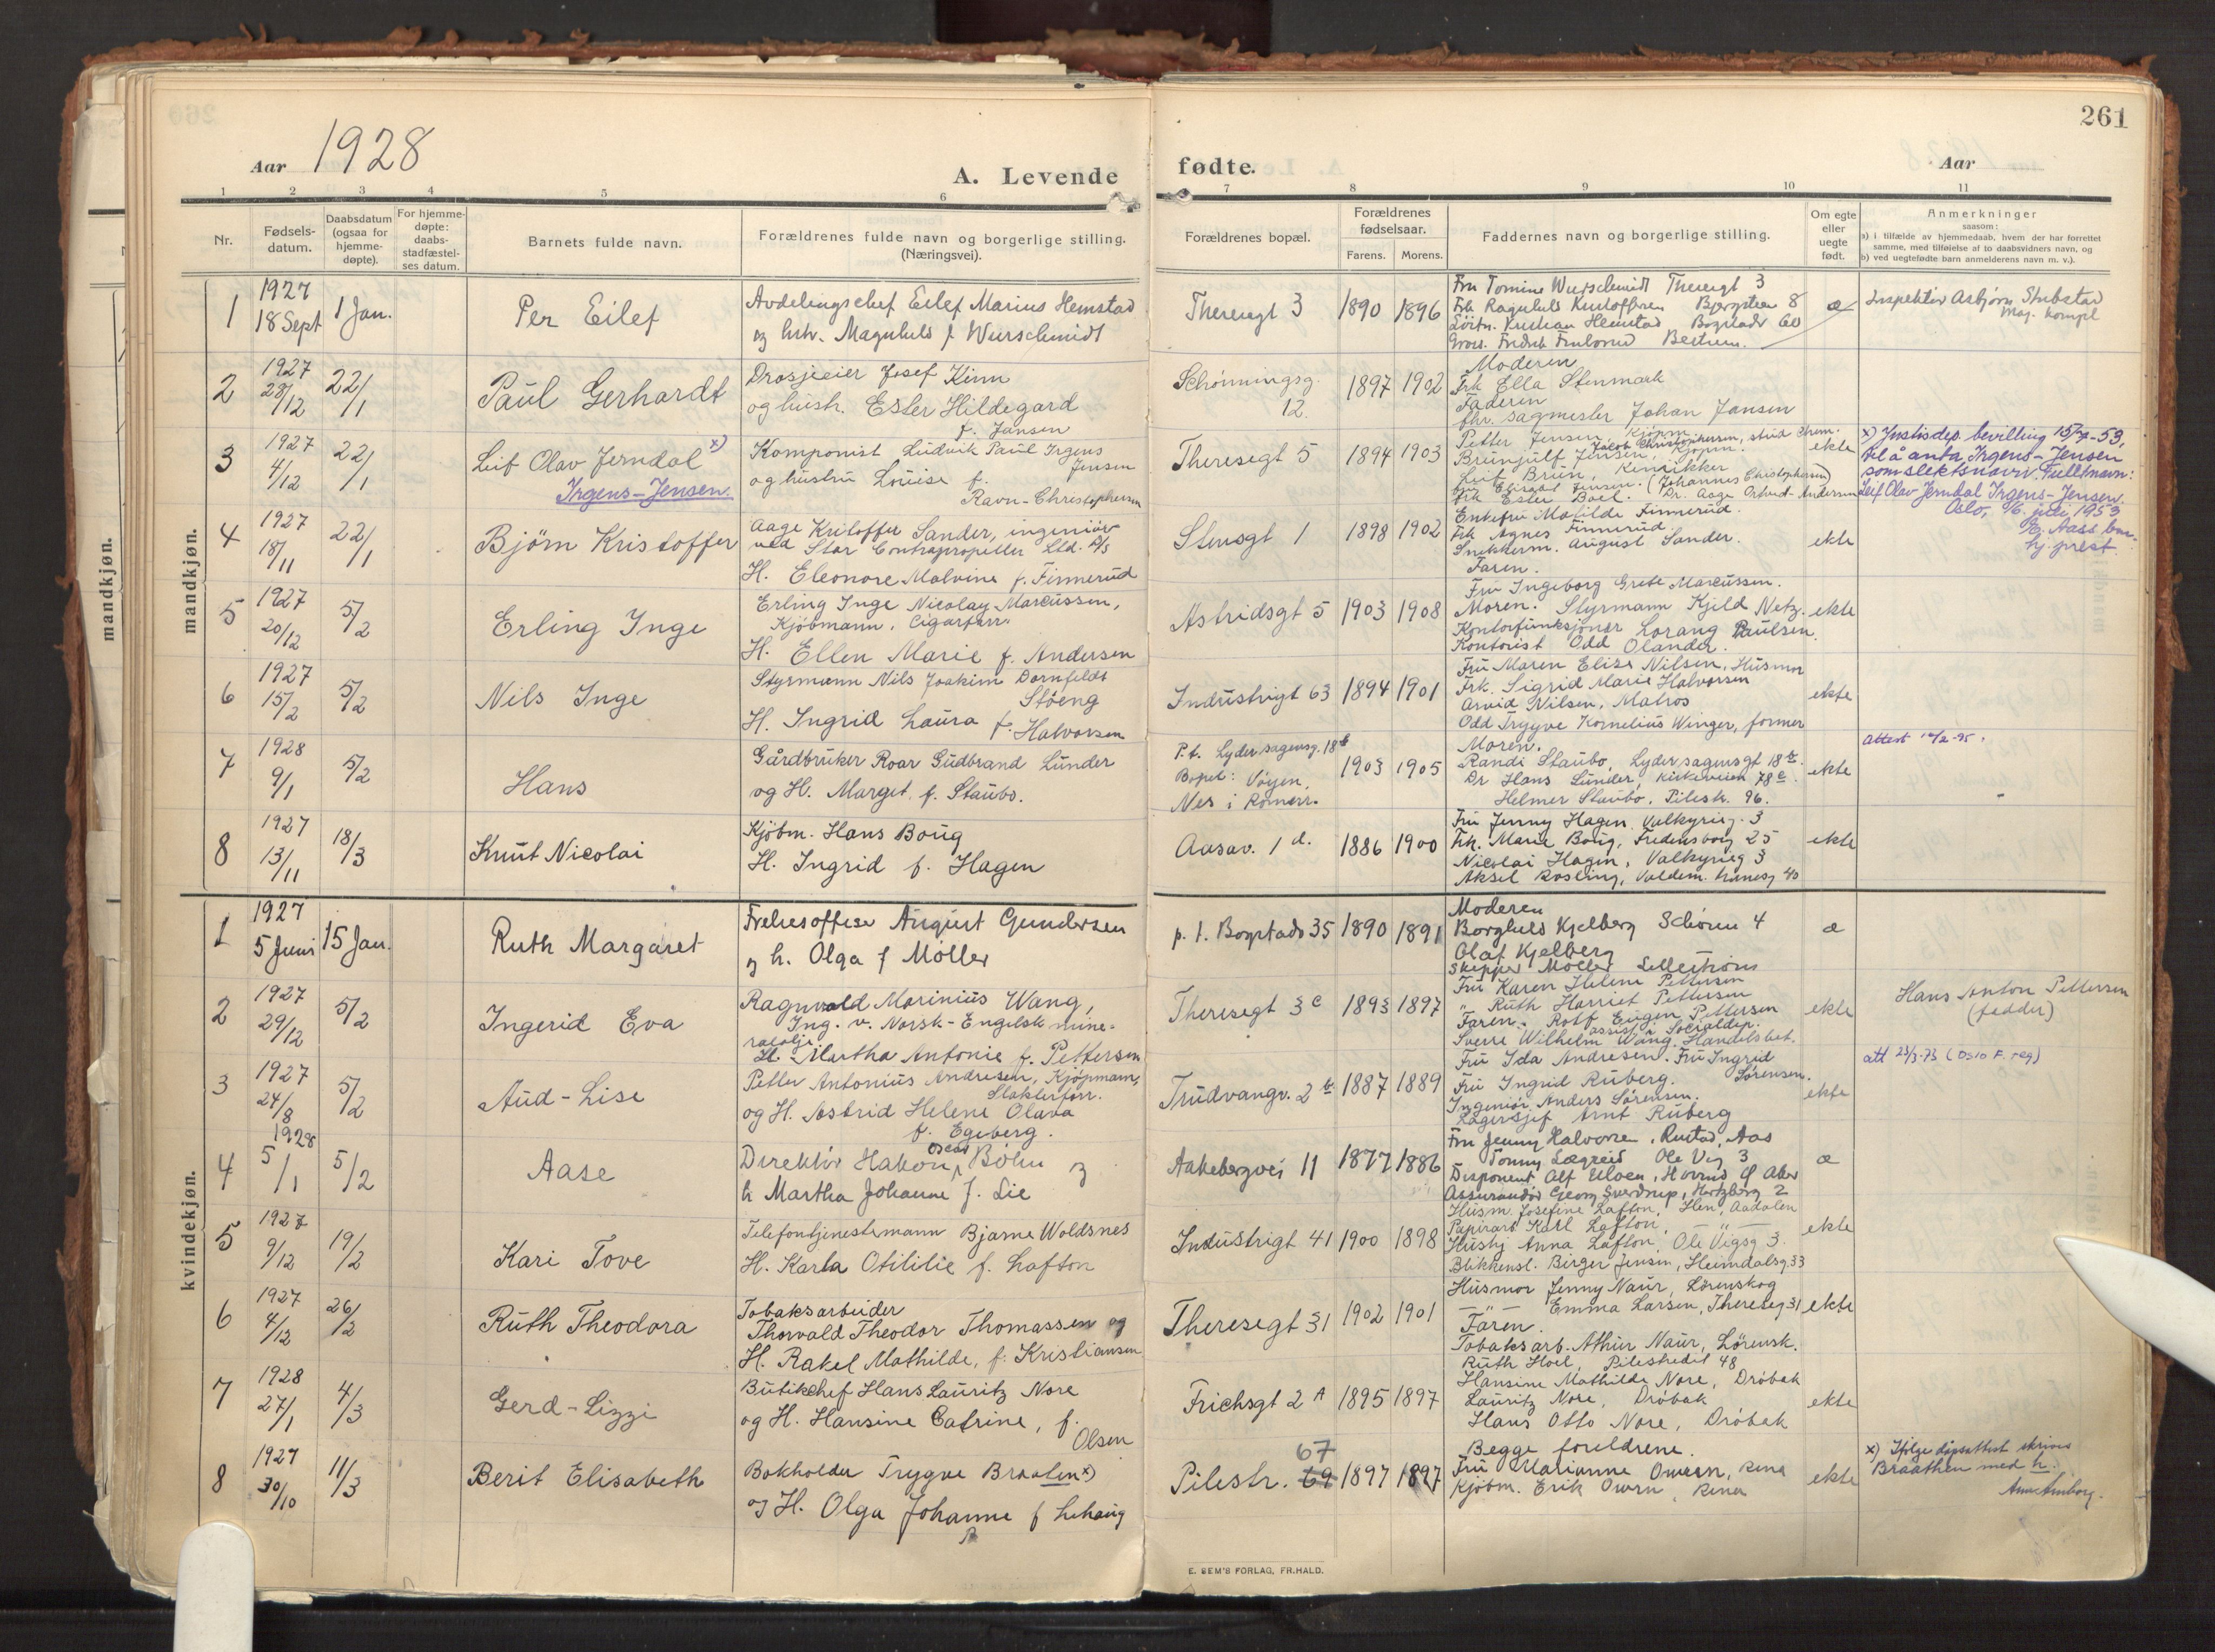 261
Aar 1928
A. Levende
fødte.
Aar
1 2 3 4 5 6 7 8 9 10 11
Nr.
Fødsels-
datum.
Daabsdatum
(ogsaa for
hjemme-
døpte).
For hjemme-
døpte:
daabs-
stadfæstel-
ses datum.
Barnets fulde navn.
Forældrenes fulde navn og borgerlige stilling.
(Næringsvei).
Forældrenes bopæl.
Forældrenes
fødselsaar.
Farens. Morens.
Faddernes navn og borgerlige stilling.
Om egte
eller
uegte
født.
Anmerkninger
saasom:
a) i tilfælde av hjemmedaab, hvem der har forrettet
samme, med tilføielse af to daabsvidners navn, og
b) ved uegtefødte barn anmelderens navn m. v.).
mandkjøn.
mandkjøn.
1
1927
18 Sept
1 Jan.
Per Eilef
Avdelingschef Eilef Marius Hemstad
og hstr. Magnhild f Wurschmidt
Theresgt 3
1890 1896
Fru Tomine Wurschmidt Theresgt 3
Frk Ragnhild Kristoffersen
Løitn. Kristian Hemstad Bogstadv 60
Bestum.
æ
Inspektør Asbjørn Stubstad
2
1927
28/12
22/1
Paul Gerhardt
Drosjeeier Josef Kinn
og hustr. Ester Hildegard
f. Jansen
Schønningsg.
12.
1897 1902
Moderen
Frk Ella Stenmark
Faderen
fhv. sagmester Johan Jansen
3
1927
4/12
22/1
Leif Olav Jerndal x)
Irgens-Jensen.
Komponist Ludvik Paul Irgens
Jensen
og hustru Louise f.
Ravn-Christophersen
Theresegt 5
1894 1903
Petter Jensen Kjøpm.
Jacob Christophersen, stud. chem.
Brünjulf Jensen, Kjøpm.
Leif Brun,
Elisabet Jensen. (Johannes Christophersen)
Frk Ester Boel. Dr. Aage Ortvid-Andersen
ekte
x) Justisdep. bevilling 15/7-53,
til å anta Irgens-Jensen
som slektsnavn. Fullt navn:
Leif Olav Jerndal Irgens-Jensen.
Oslo, juli 1953
hj. prest.
4
1927
18/11
22/1
Bjørn Kristoffer
Aage Kristoffer Sander, ingeniør
ved Star Contrapropeller Ltd. A/S
H. Eleonore Malvine f. Finnerud
Stensgt 1
1898 1902
Enkefru Matilde Finnerud.
Frk Agnes Finnerud.
Snekkerm. August Sander.
Faren.
ekte
5
1927
20/12
5/2
Erling Inge
Erling Inge Nicolay Marcussen,
Kjøbmann, Cigarforr.
H. Ellen Marie f. Andersen
Astridsgt 5
1903 1908
Fru Ingeborg Grete Marcussen.
Moren. Styrmann Kjeld Netz.
Kontorfunksjonær Lorang Paulsen.
Kontorist Odd Olander.
ekte
6
1927
15/2
5/2
Nils Inge
Styrmann Nils Joakim Dornfeldt
Støeng
H. Ingrid Laura f. Halvorsen
Industrigt 63
1894 1901
Fru Maren Elise Nilsen, Husmor
Frk. Sigrid Marie Halvorsen
Arvid Nilsen, Matros
Odd Trygve Kornelius Winger, former
ekte
7
1928
9/1
5/2
Hans
Gårdbruker Roar Gudbrand Lunder
og H. Margit f. Staubo.
P.t. Lyder sagensg. 18 b
Bopel: Vøyen,
Nes i Romerr.
1903 1905
Moren.
Randi Staubo, Lyder sagensgt 18 b.
Dr Hans Lunder, Kirkeveien 78 e.
Helmer Staubo, Pilestr. 96.
ekte
8
1927
13/11
18/3
Knut Nicolai
Kjøbm. Hans Boug
H. Ingrid f. Hagen
Aasav. 1 d.
1886 1900
Fru Jenny Hagen, Valkyrieg. 3
Frk. Marie Boug, Fredensborg 25
Nicolai Hagen, Valkyrieg 3
Aksel Rosling, Valdem. 40
ekte
kvindekjøn.
1
1927
5 Juni
15 Jan.
Ruth Margaret
Frelsesoffiser August Gundersen
og h. Olga f Møller
p. t. Bogstadv 35
1890 1891
Moderen
Borghild Kjelberg Schønn 4
Olaf Kjelberg
Skipper Møller Lillestrøm
æ
2
1927
29/12
5/2
Ingerid Eva
Ragnvald Marinius Wang,
Ing. v. Norsk-Engelsk mine-
ralolje
H. Martha Antonie f. Pettersen
Theresegt 3 c
1893 1897
Fru Karen Helene Pettersen
" Ruth Harriet Pettersen
Faren. Rolf Eugen Pettersen
assist. i Socialdep.
Sverre Wilhelm Wang, Handelsbet.
ekte
Hans Anton Pettersen
(fadder)
3
1927
24/8
5/2
Aud-Lise
Petter Antonius Andresen, Kjøpmann,
Slakterforr.
og H. Astrid Helene Olava
f. Egeberg.
Trudvangv. 2 b
1887 1889
Fru Ida Andresen. Fru Ingrid
Sørensen.
Fru Ingrid Ruberg.
Ingeniør Anders Sørensen.
Lagersjef Arnt Ruberg
ekte
att 23/3-73 (Oslo F. reg)
4
1928
5/1
5/2
Aase
Direktør Hakon Oscar Böhn og
h Martha Johanne f. Lie
Aakebergvei 11
1877 1886
Fru Jenny Halvorsen, Rustad, Aas
Tonny Lægreid Ole Vig 3
Disponent Alf Uloen
Assurandør Georg Sverdrup, Hertzberg 2
æ
5
1927
9/12
19/2
Kari Tove
Telefontjenestemann Bjarne Woldsnes
H. Karla Otililie f. Lafton
Industrigt 41
1900 1898
Husm. Josefine Lafton, Hen, Aadalen
Papirarb Karl Lafton, — " —
Hushj Anna Lafton, Ole Vigsg 3.
Blikkensl. Birger Jensen, Heimdalsg. 33
ekte
6
1927
4/12
26/2
Ruth Theodora
Tobaksarbeider
Thorvald Theodor Thomassen og
H. Rakel Mathilde, f. Kristiansen
Theresegt 31
1902 1901
Husmor Jenny Naur, Lørenskog
— " — Emma Larsen, Thereseg 31
Faren.
Tobaksarb. Athur Naur, Lørensk.
ekte
7
1928
27/1
4/3
Gerd-Lizzi
Butikchef Hans Lauritz Nore
og H. Hansine Catrine, f.
Olsen
Frichsgt 2 A
1895 1897
Ruth Hoel, Pilestredet 48
Hansine Mathilde Nore, Drøbak
Lauritz Nore, Drøbak
Hans Otto Nore, Drøbak
ekte
8
1927
30/10
11/3
Berit Elisabeth
Bokholder Trygve Braaten x)
og H. Olga Johanne f
Pilestr. 69 67
1897 1897
Begge foreldrene.
Fru Marianne Owren, Rena
Kjøbm. Erik Owren, Rena
ekte
x) Ifølge dåpsattest skrives
Braathen med h.
E. SEM'S FORLAG, FR.HALD.